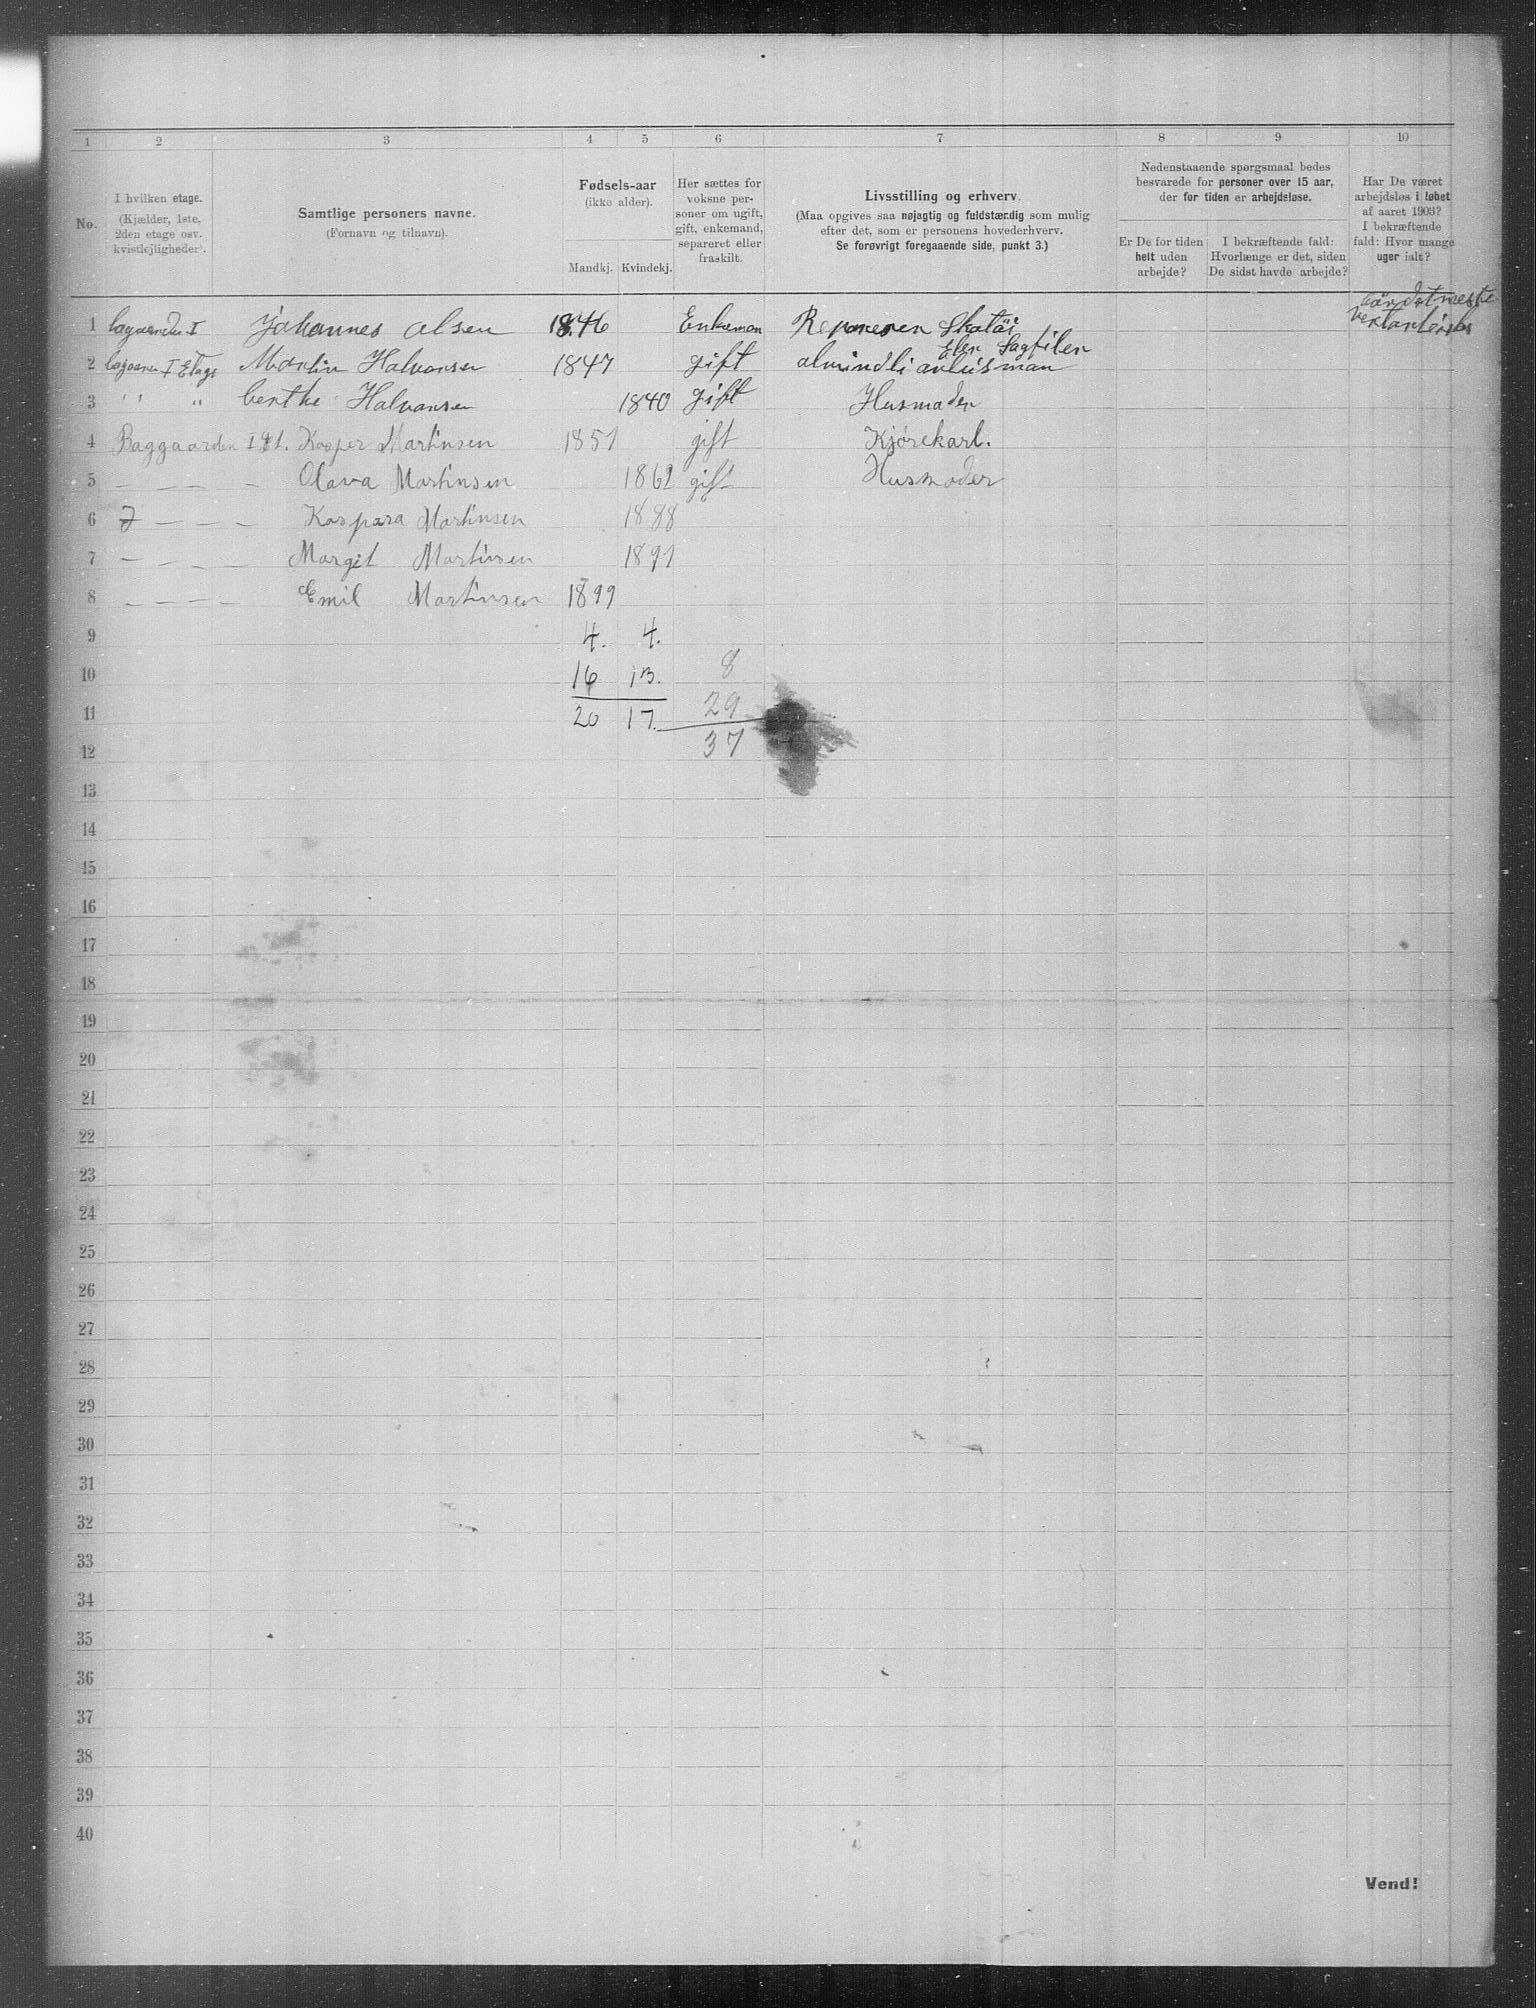 1 2 3 4 5 6 7 8 9 10
No.
I hvilken etage.
(Kjælder, 1ste,
2den etage osv.
kvistlejligheder).
Samtlige personers navne.
(Fornavn og tilnavn).
Fødsels-aar
(ikke alder).
Mandkj. Kvindekj.
Her sættes for
voksne per-
soner om ugift,
gift, enkemand,
separeret eller
fraskilt.
Livsstilling og erhverv.
(Maa opgives saa nøjagtig og fuldstærdig som mulig
efter det, som er personens hovederhverv.
Se forøvrigt foregaaende side, punkt 3.)
Nedenstaaende spørgsmaal bedes
besvarede for personer over 15 aar,
der for tiden er arbejdeløse.
Er De for tiden
helt uden
arbejde?
I bekræftende fald:
Hvorlænge er det, siden
De sidst havde arbejde?
Har De været
arbejdsløs i løbet
af aaret 1903?
I bekræftende
fald: Hvor mange
uger ialt?
1 I Johannes Olsen 1846 Enkeman Skatøi
Sagfiler
2 I Etags Martin Halvorsen 1847 gift almindli
3 " " berthe Halvorsen 1840 gift Husmader
4 Baggaarden I Kasper Martinsen 1851 gift Kjørekarl.
5 — — — — Olava Martinsen 1862 gift Husmoder
6 — — — Kaspara Martinsen 1888
7 — — — — Margit Martinsen 1891
8 — — — — Emil Martinsen 1899
9 4. 4.
10 16 13. 8
11 20 17. 29
12 37
13
14
15
16
17
18
19
20
21
22
23
24
25
26
27
28
29
30
31
32
33
34
35
36
37
38
39
40
Vend!